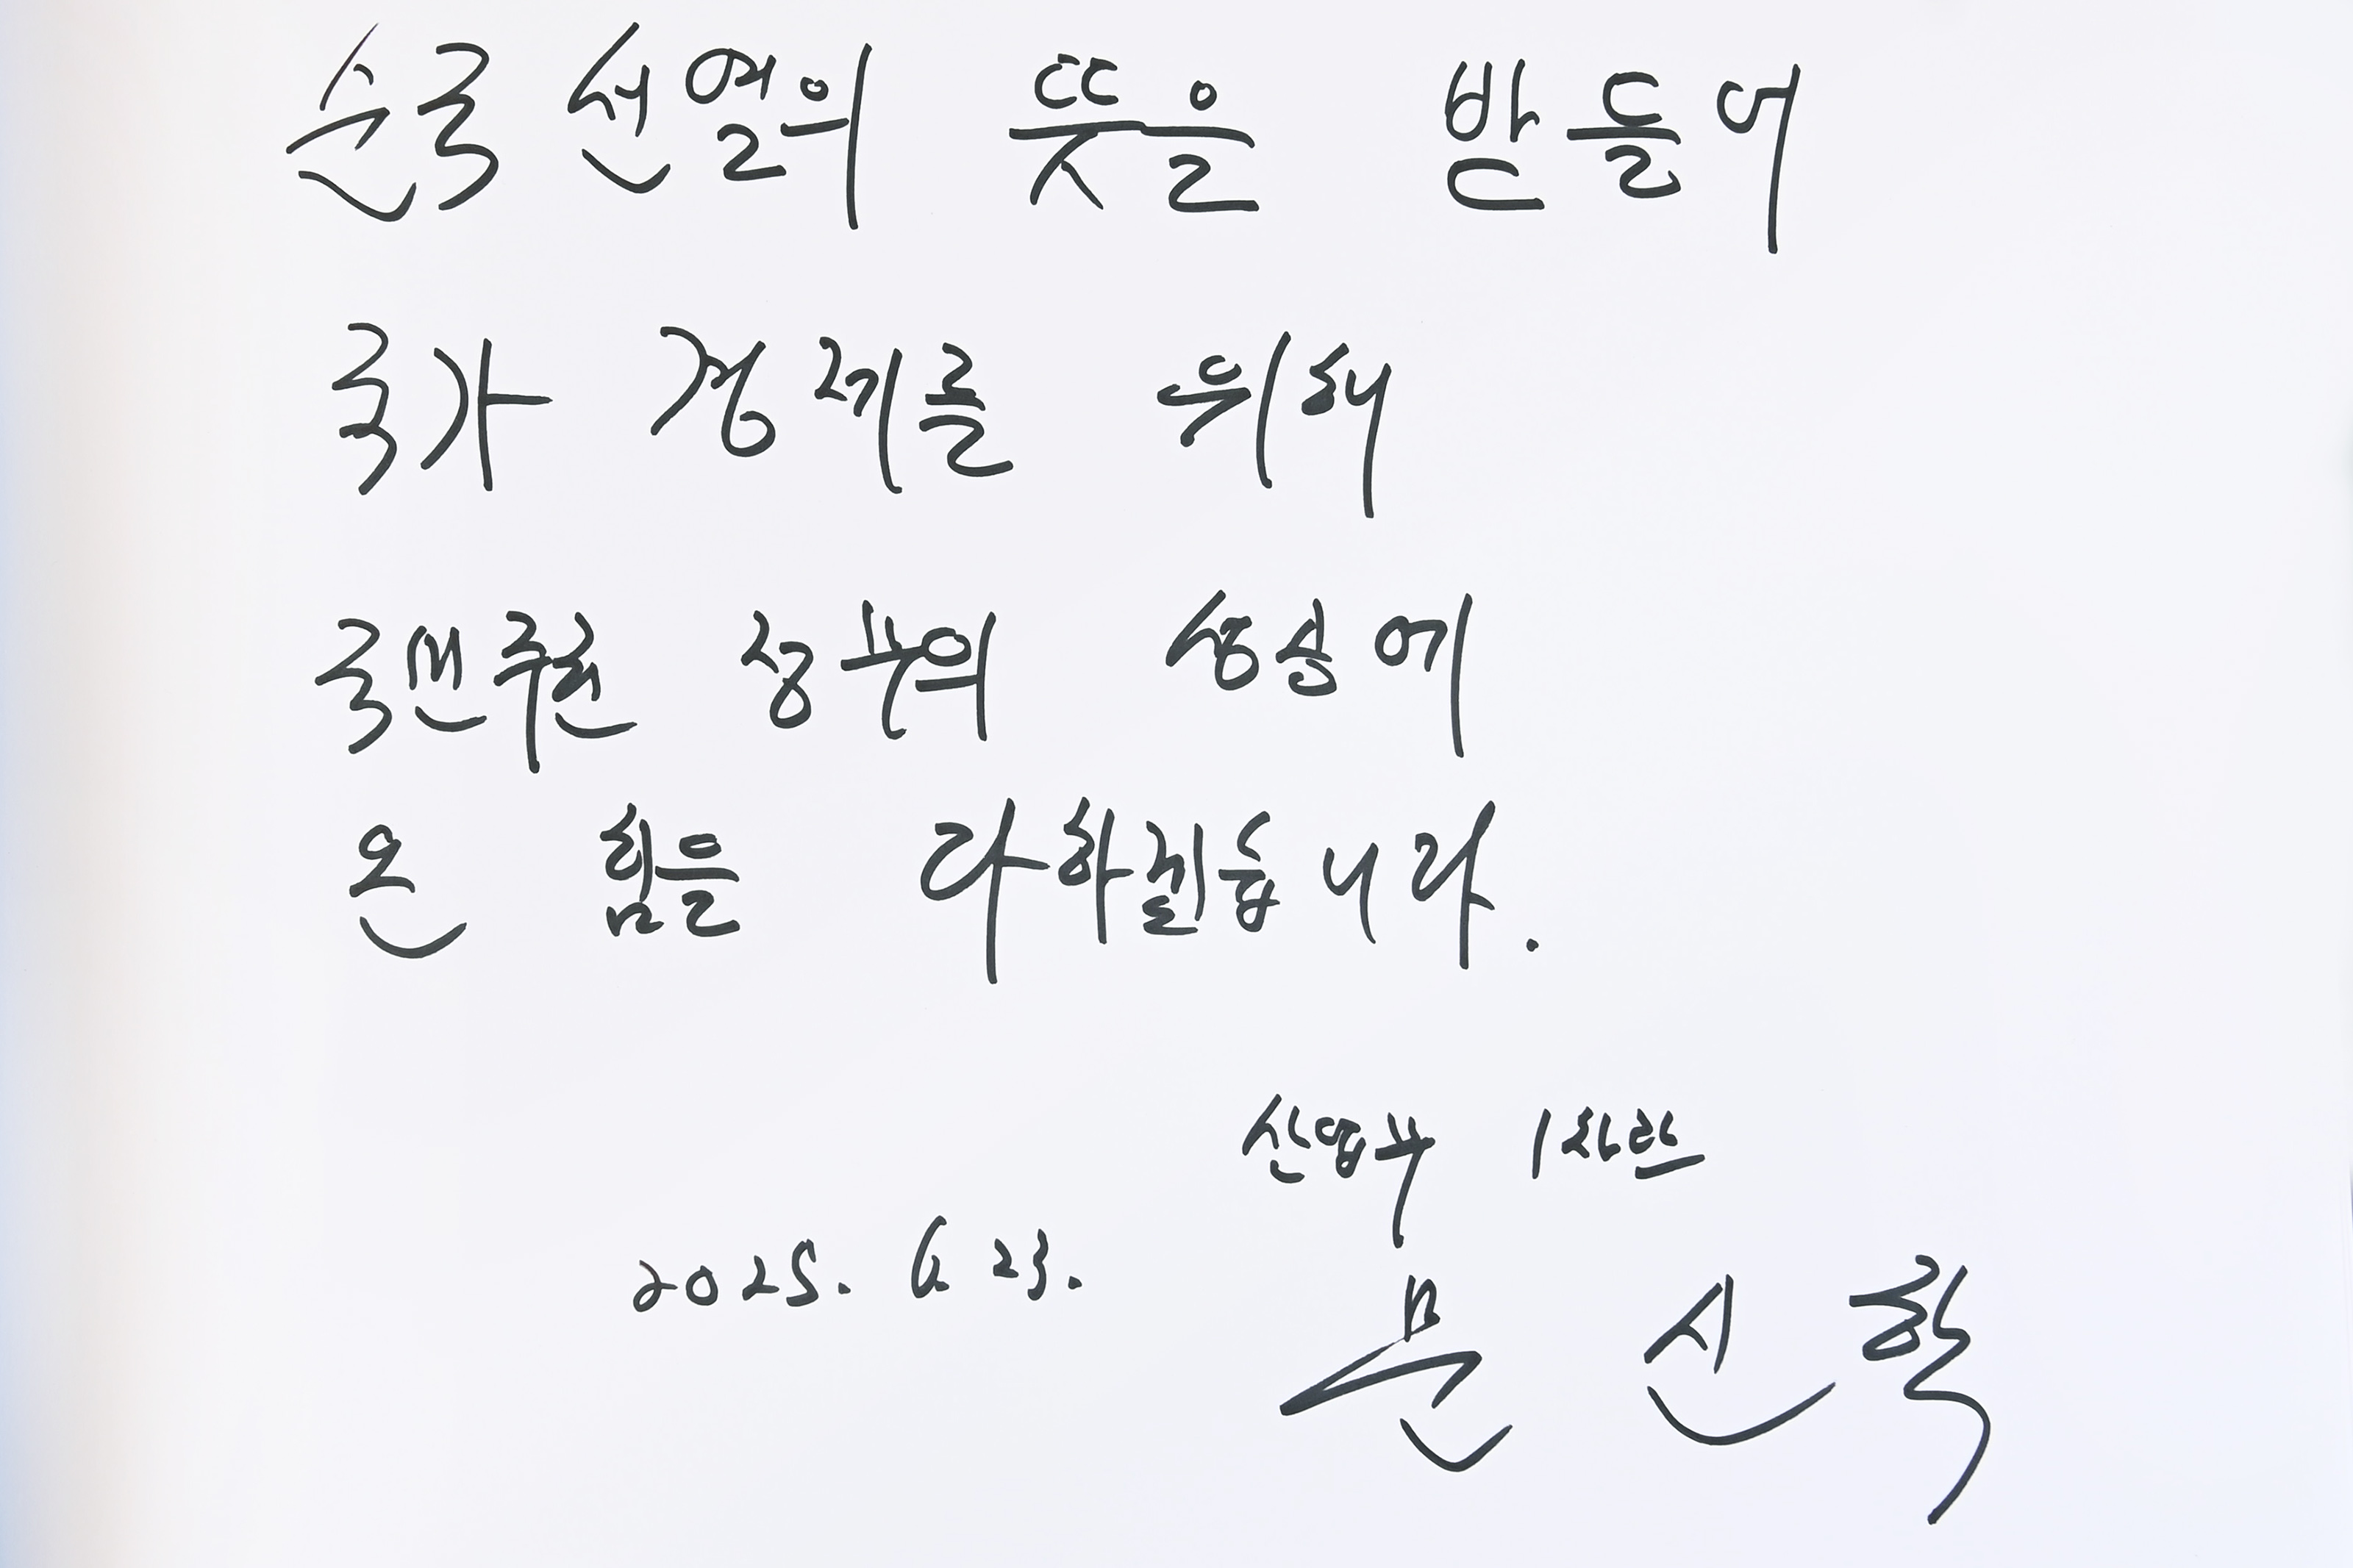 순국선열의 뜻을 받들어
국가 경제를 위해
국민주권 정부의 성공에
온 힘을 다하겠습니다.
산업부 1차관
2025. 6. 23.
문 신학